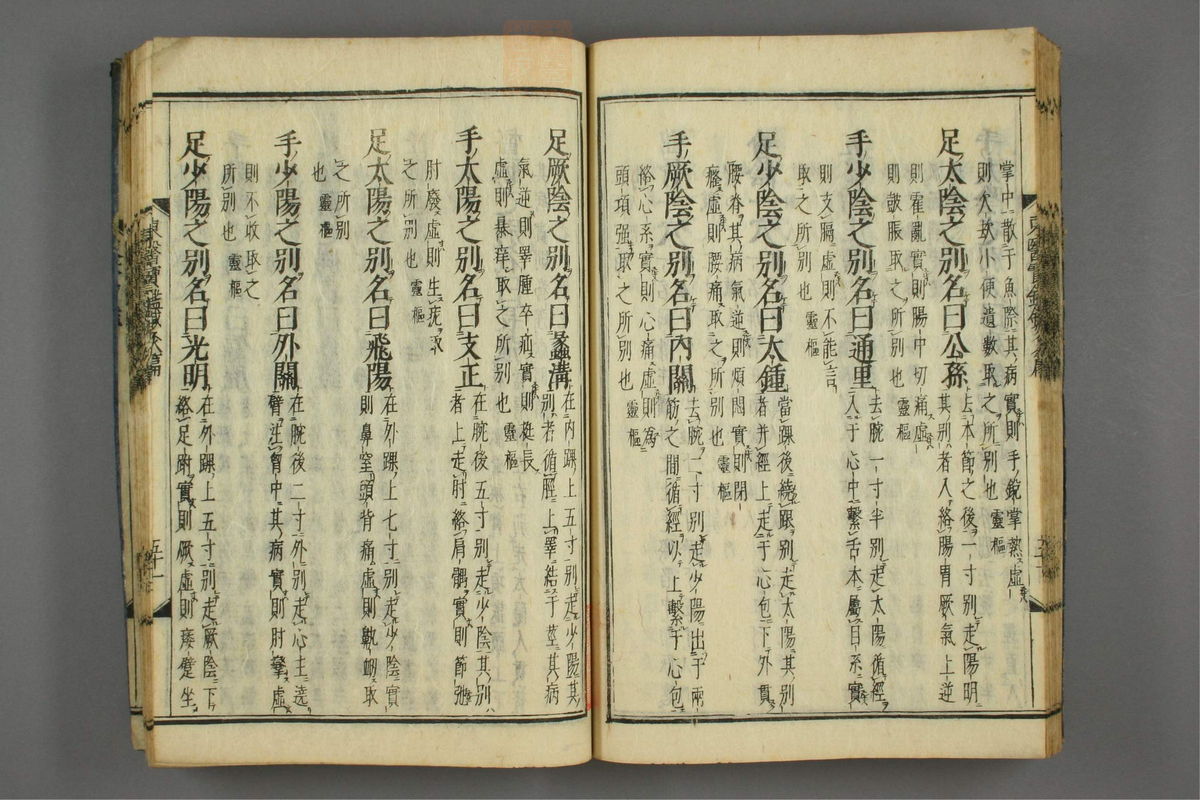 掌中散于魚際其病實則手銳掌熱虛
則欠㰦小便遺數取之所別也靈樞
足太陰之別名曰公孫
去本節之後一寸別走陽明
其別者入絡腸胃厥氣上逆
則霍亂實則腸中切痛虛
則皷脹取之所別也靈樞
手少陰之別名曰通里
去腕一寸半別走太陽循經
入于心中繫舌本屬目系實
則支膈虛則不能言
取之所別也靈樞
足少陰之別名曰大鍾
當踝後繞跟別走太陽其別
者并經上走于心包下外貫
腰脊其病氣逆則煩悶實則閉
癃虛則腰痛取之所別也靈樞
手厥陰之別名曰內關
去腕二寸別走少陽出于兩
筋之間循經以上繫于心包
絡心系實則心痛虛則為
頭項强取之所別也靈樞
足厥陰之別名曰蠡溝
在內踝上五寸別走少陽其
別者循脛上睪結于莖其病
氣逆則睪腫卒疝實則挺長
虛則暴痒取之所別也靈樞
手太陽之別名曰支正
在腕後五寸別走少陰其別
者上走肘絡肩髃實則節弛
肘廢虛則生疣取
之所別也靈樞
足太陽之別名曰飛陽
在外踝上七寸別走少陰實
則鼻窒頭背痛虛則鼽衄取
之所別
也靈樞
手少陽之別名曰外關
在腕後二寸外別走心主遶
臂注胷中其病實則肘攣虛
則不收取之
所別也靈樞
足少陽之別名曰光明
在外踝上五寸別走厥陰下
絡足跗實則厥虛則痿躄坐
東醫寶鑑
五十一